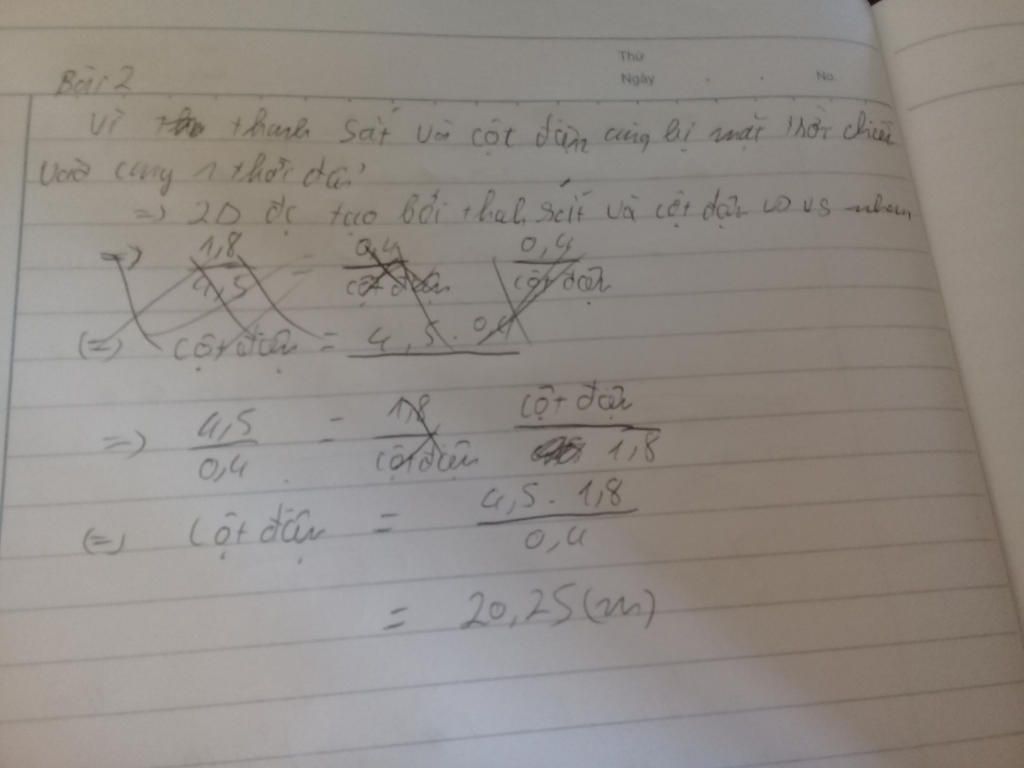 Thứ
Ngày No.
Bài 2
Vì thanh sắt và cột điện cùng bị mặt trời chiếu
vào cùng 1 thời điểm
=) 2Δ đc tạo bởi thah sắt và cột điện vs nhau
=) 1,8 / 4,5 = 0,4 / cột điện 0,4 / cột điện
(=) cột điện = 4,5 . 0,4
=) 4,5 / 0,4 = 1,8 / cột điện cột điện / 1,8
(=) Cột điện = 4,5 . 1,8 / 0,4
= 20,25 (m)